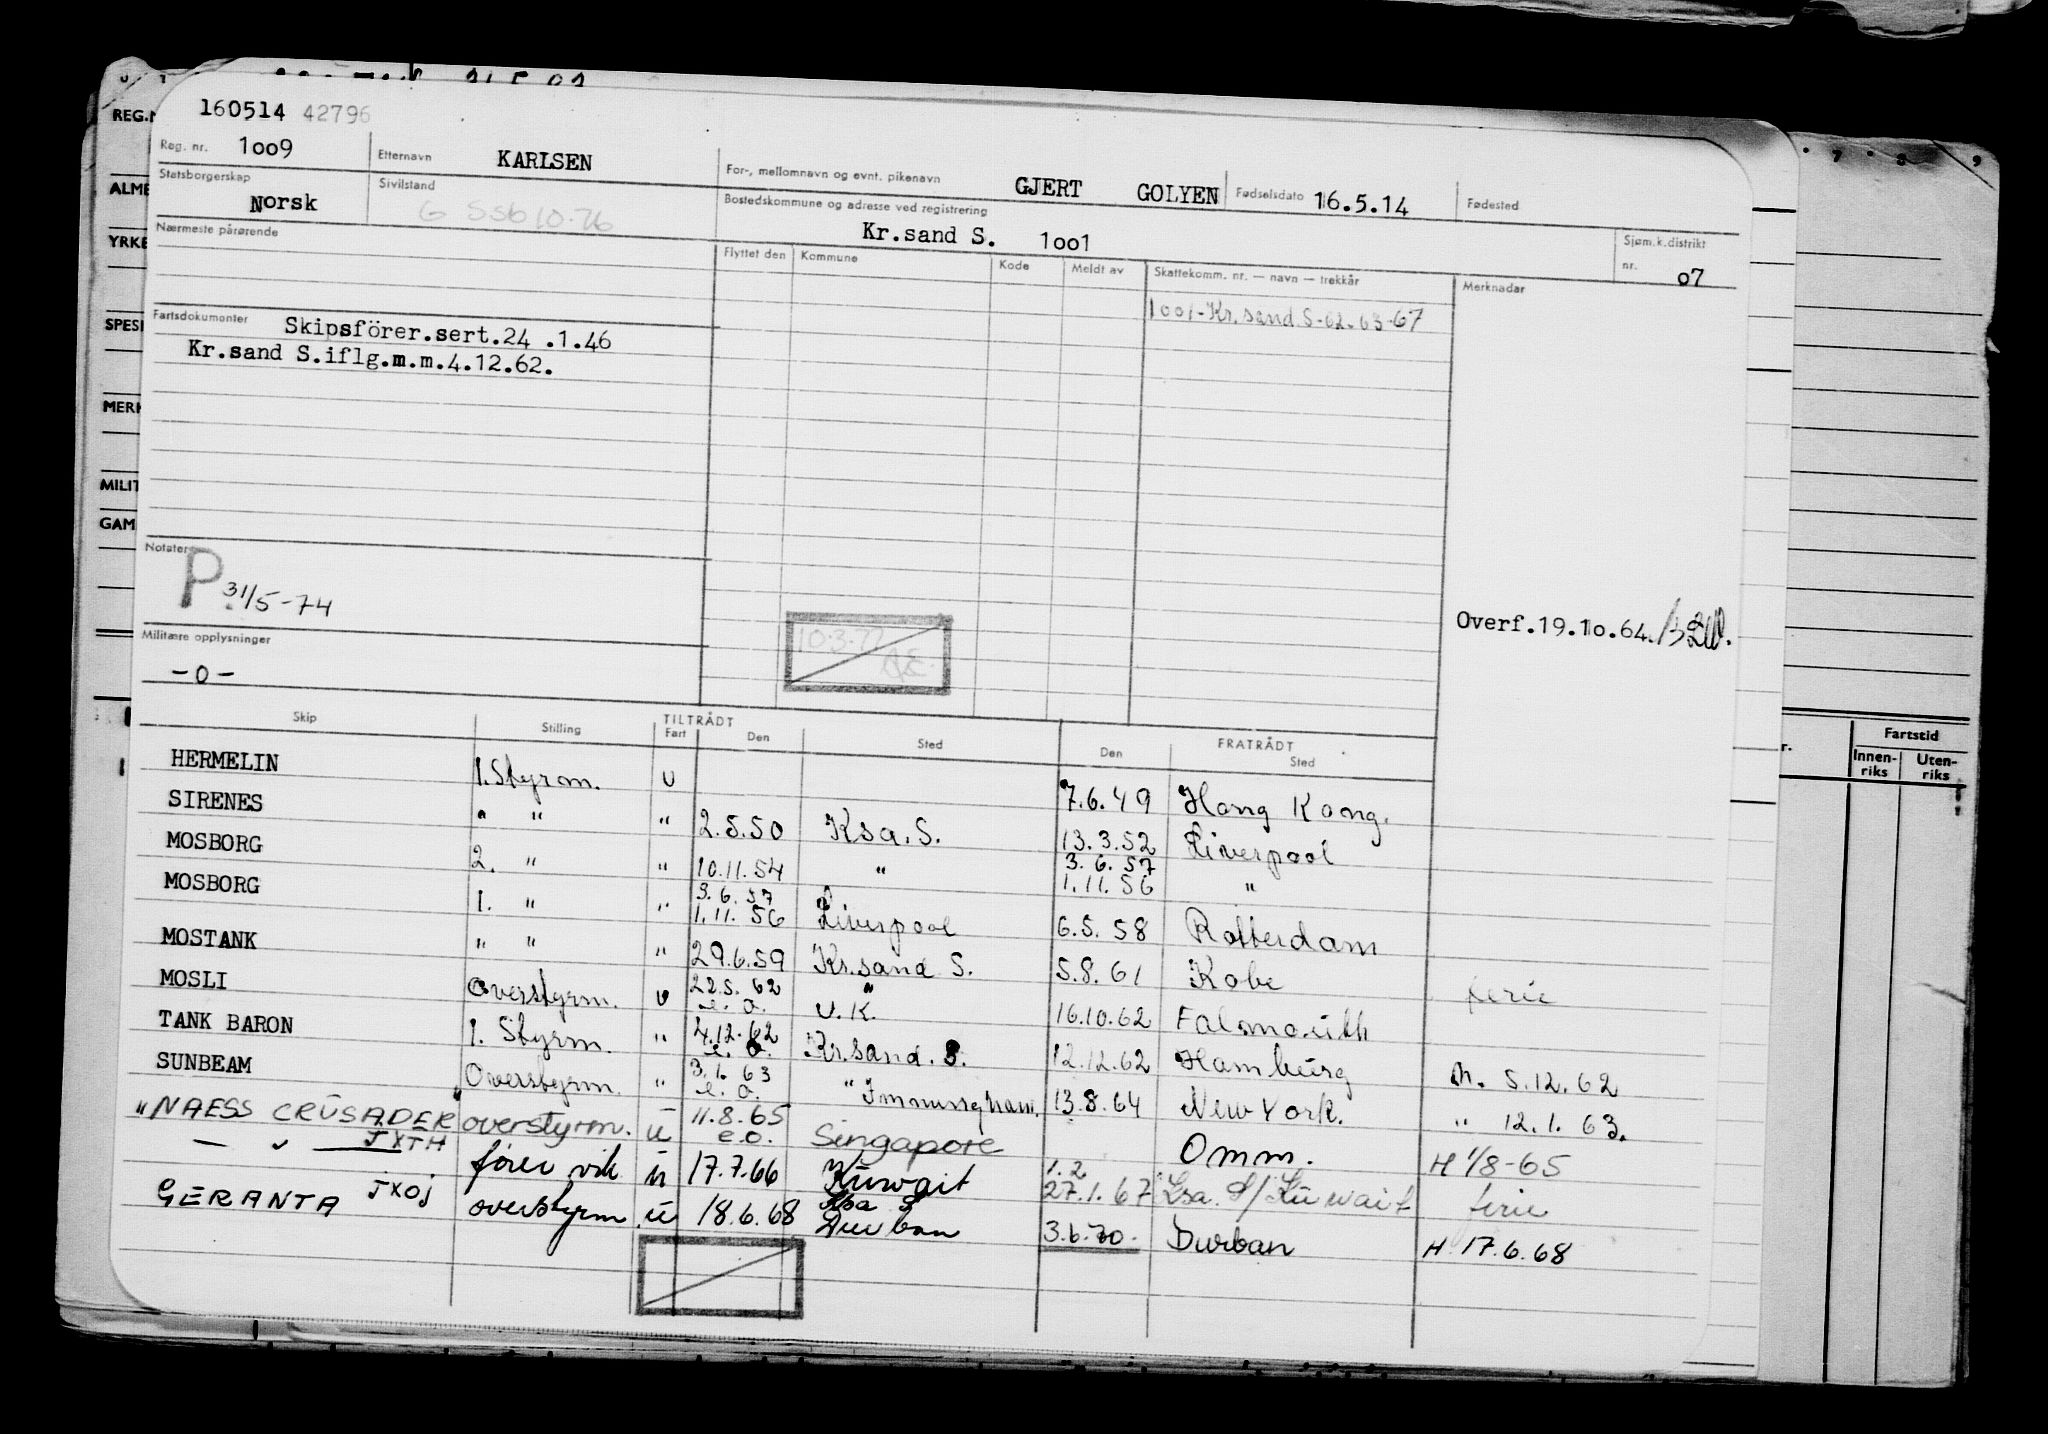 160514 42796
REG.N
Reg. nr. 1oo9 Etternavn KARLSEN For-, mellomnavn og evnt. pikenavn GJERT GOLYEN Fødselsdato 16.5.14 Fødested
ALME
Statsborgerskap Norsk Sivilstand G SSb 10.76 Bostedskommune og adresse ved registrering Kr.sand S. 1oo1 Sjøm.k.distrikt nr. o7
YRKE
Nærmeste pårørende Flyttet den Kommune Kode Meldt av Skattekomm. nr. — navn — trekkår Merknader
1001-Kr.sand.S-62.63-67
SPESI
Fartsdokumenter Skipsförer.sert.24 .1.46
Kr.sand S.iflg.m.m.4.12.62.
MERK
MILIT
GAM
Notater
P 31/5-74
Overf.19.1o.64.
10.3.77
Militære opplysninger
-o-
Skip Stilling TILTRÅDT Fart Den Sted FRATRÅDT Den Sted
Fartstid
Innen-riks Uten-riks
HERMELIN 1. Styrm. U 7.6.49 Hong Kong.
SIRENES " " " 2.5.50 Ksa. S. 13.3.52 Liverpool
MOSBORG 2. " " 10.11.54 " 3.6.57 1.11.56 "
MOSBORG 1. " " 3.6.57 1.11.56 Liverpool 6.5.58 Rotterdam
MOSTANK " " " 29.6.59 Kr.sand S. 5.8.61 Kobe ferie
MOSLI Overstyrm. U 22.5.62 e.o. " U.K. 16.10.62 Falmouth
TANK BARON 1. Styrm. " 4.12.62 e.o. Kr.sand.S. 12.12.62 Hamburg M. 5.12.62
SUNBEAM Overstyrm. " 3.1.63 e.o. " Immingham. 13.8.64 New York. " 12.1.63.
"NAESS CRUSADER" overstyrm. u 11.8.65 e.o. Singapore Omm. H 1/8-65
— " — JXTH fører vik u 17.7.66 Kuwait 1.2 27.1.67 Ksa. S/Kuwait ferie
GERANTA JXOJ overstyrm. u 18.6.68 Ksa S Durban 3.6.70. Durban H 17.6.68